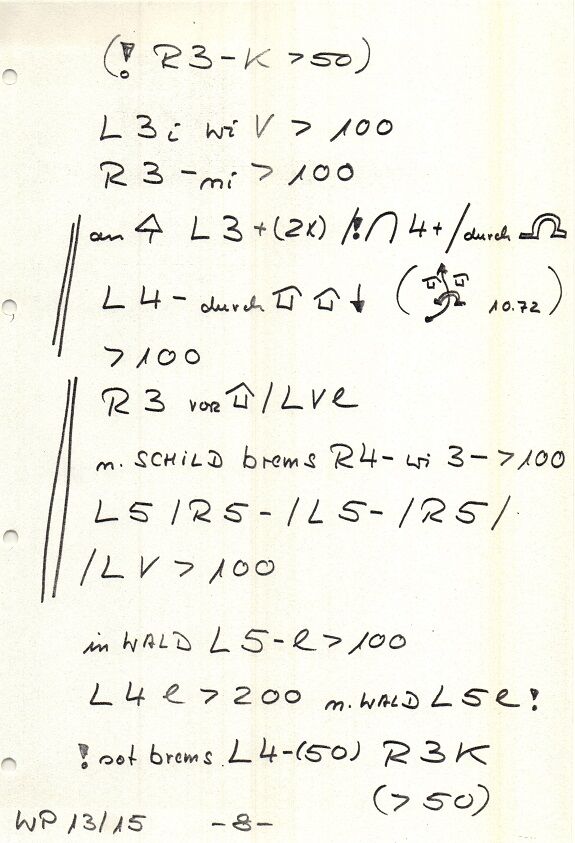 (! R3-K >50)
L3i wi V > 100
R3-mi > 100
an L3+(2x) /!∩4+/durch
L4- durch ↓ ( 10.72)
>100
R3 vor /LVe
n. SCHILD brems R4- wi 3->100
L5/R5-/L5-/R5/
/LV>100
in WALD L5-e>100
L4e>200 n. WALD L5e!
! sot brems. L4-(50) R3K
(>50)
WP 13/15 -8-